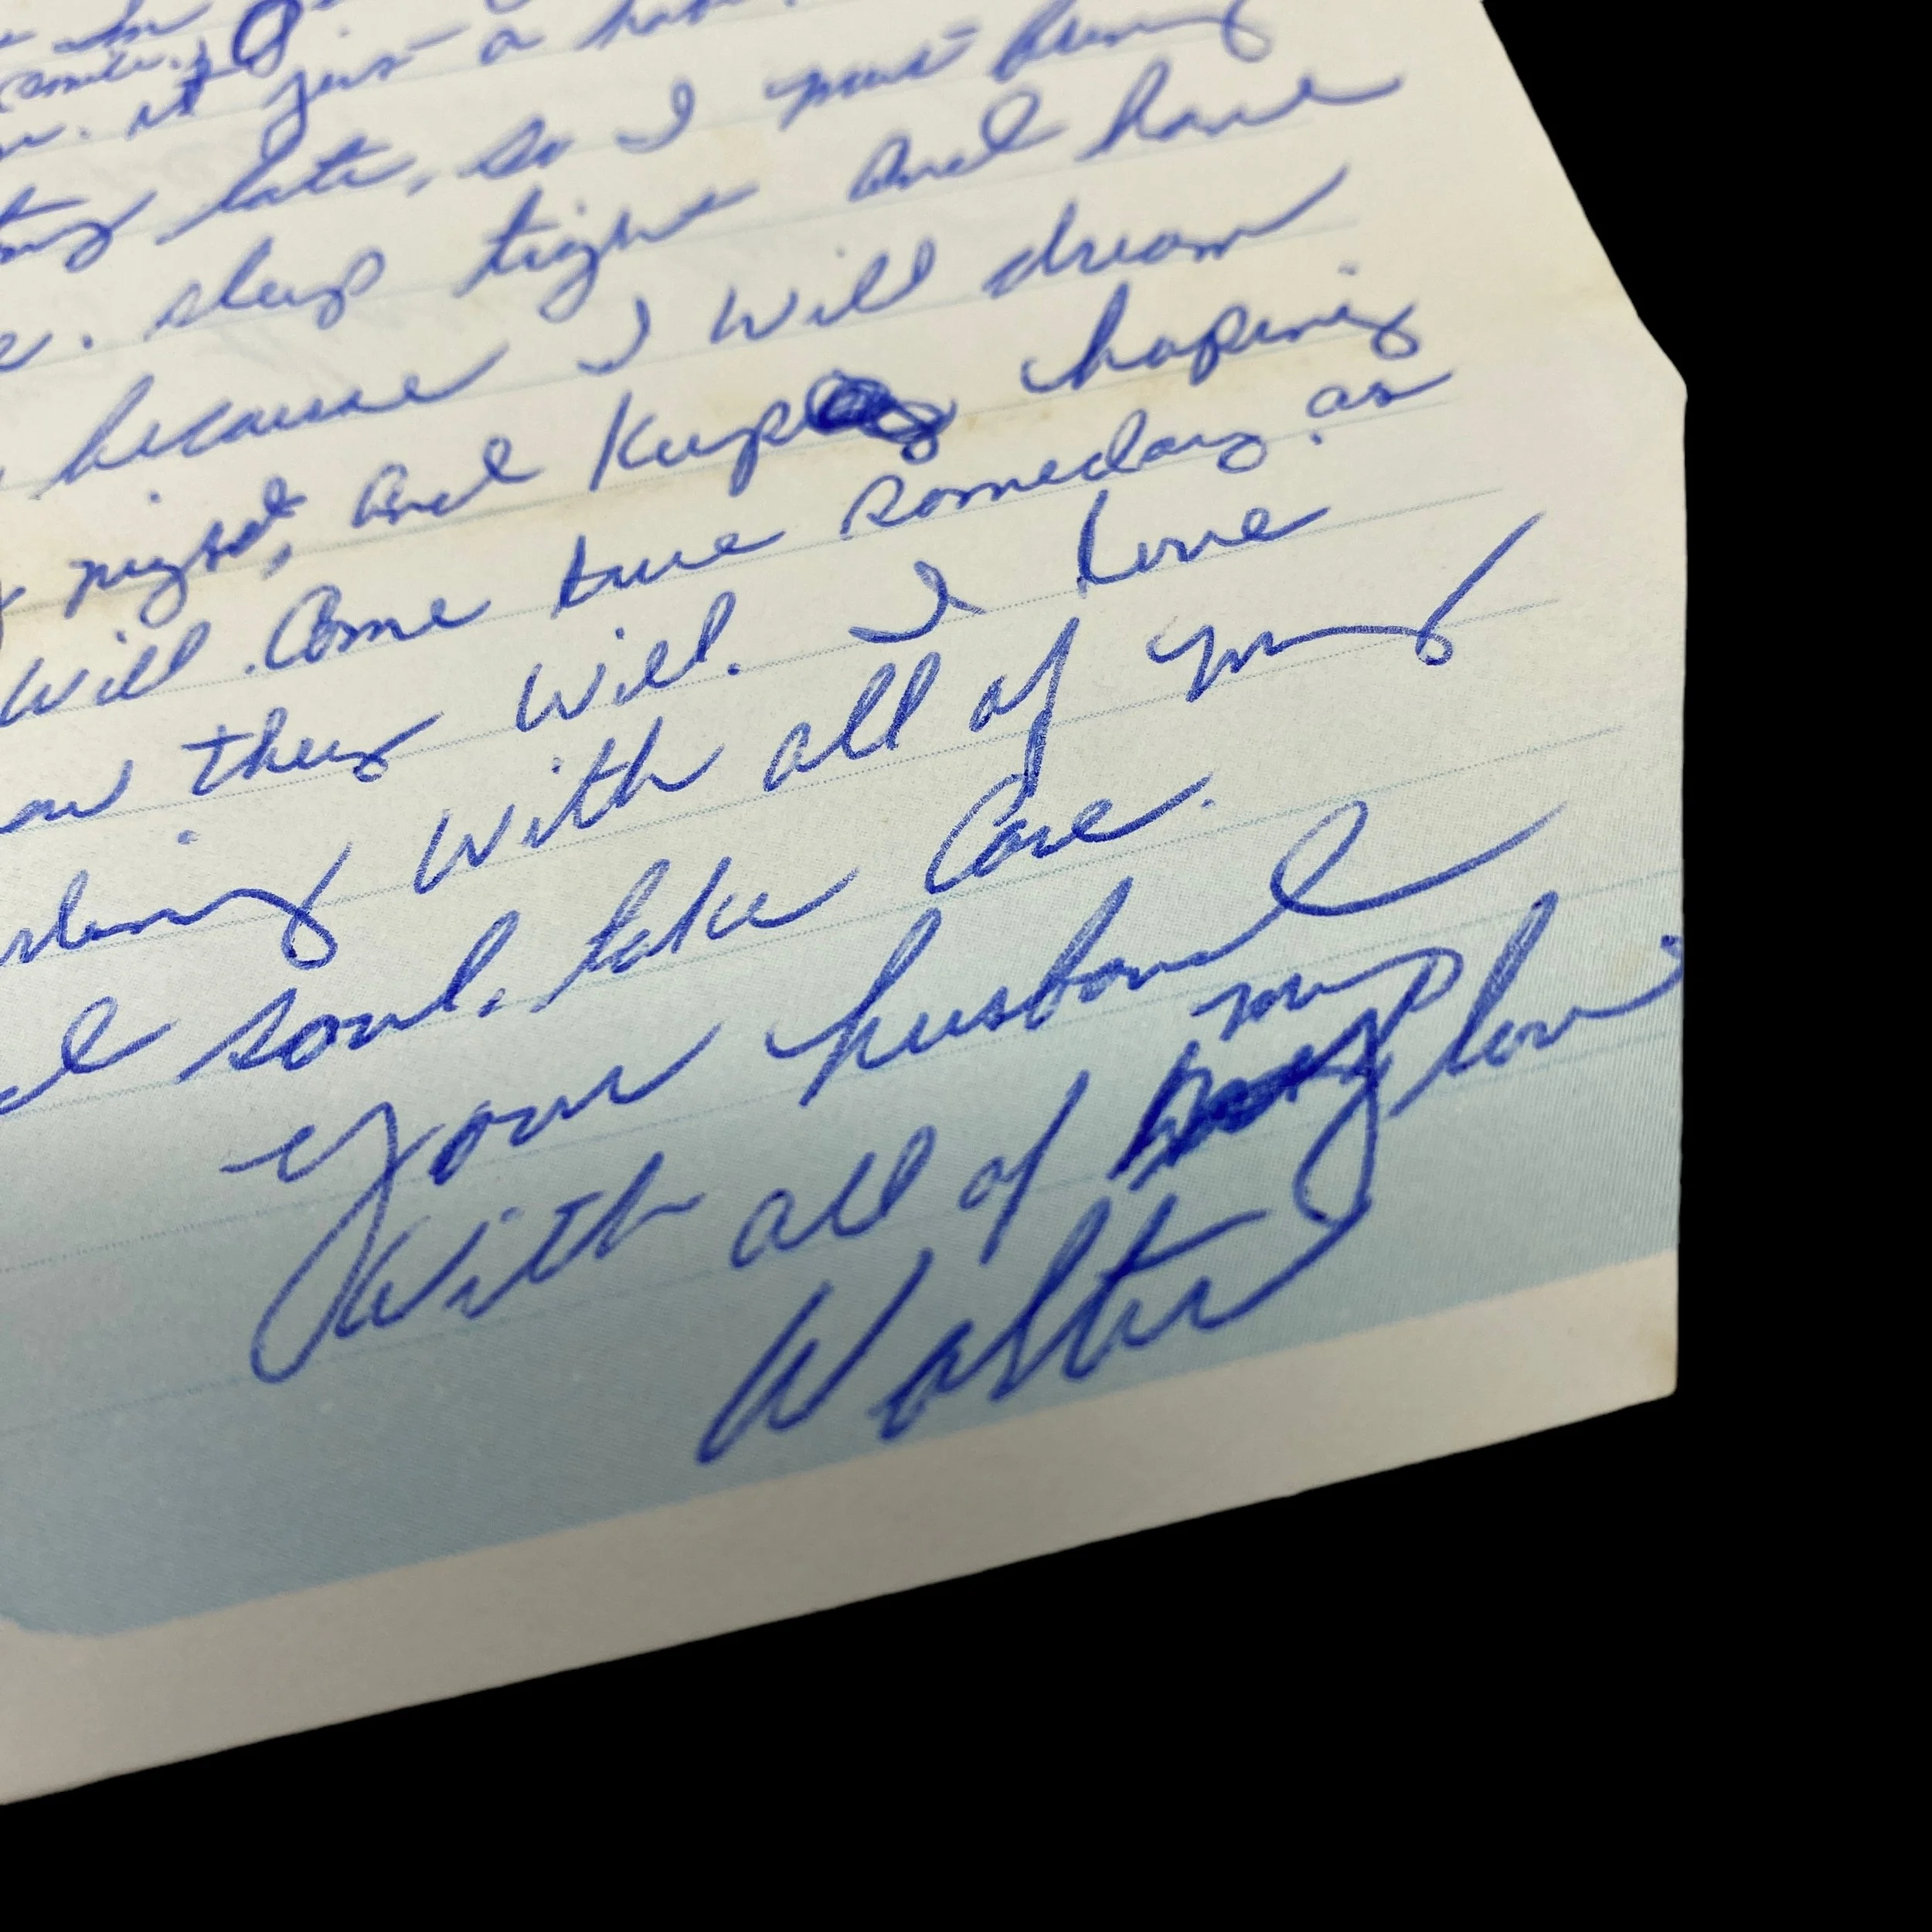 it just a
late, so I must bring
sleep tight and have
because I will dream
night, and keep hoping
will come true someday. as
they will. I love
with all of my
soul. take care.
your husband
With all of my love
Walter